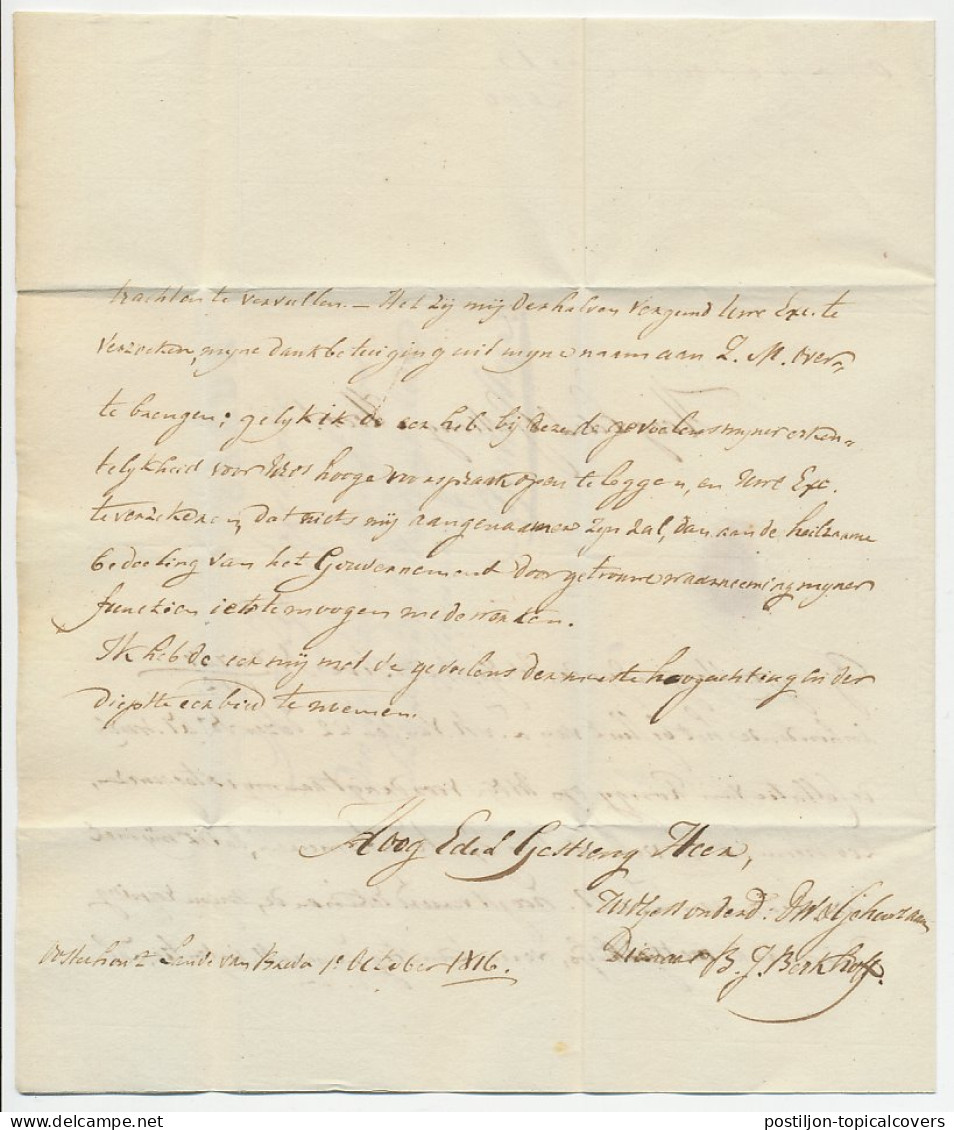 trachten te vervullen. — Het zij mij derhalven vergund Uwe Exc. te
verzoeken, myne dankbetuiging uit myne naam aan Z. M. over-
te brengen; gelyk ik de eer heb bij deze de gevoelens myner erken-
telykheid voor Uwe hooge voorspraak open te leggen, en Uwe Exc.
te verzekeren, dat niets mij aangenaamer zijn zal, dan aan de heilzaame
bedoeling van het Gouvernement door getrouwe waarneeming myner
functien iets te moogen medewerken.
Ik heb de eer mij met de gevoelens der meeste hoogachting en der
diepste eerbied te noemen.
Hoog Edel Gestreng Heer,
UwHgest. onderd: en Gehoorzaam
Oosterhout Lande van Breda 1e October 1816.
Dienaar B. J. Berkhoff.
postiljon-topicalcovers